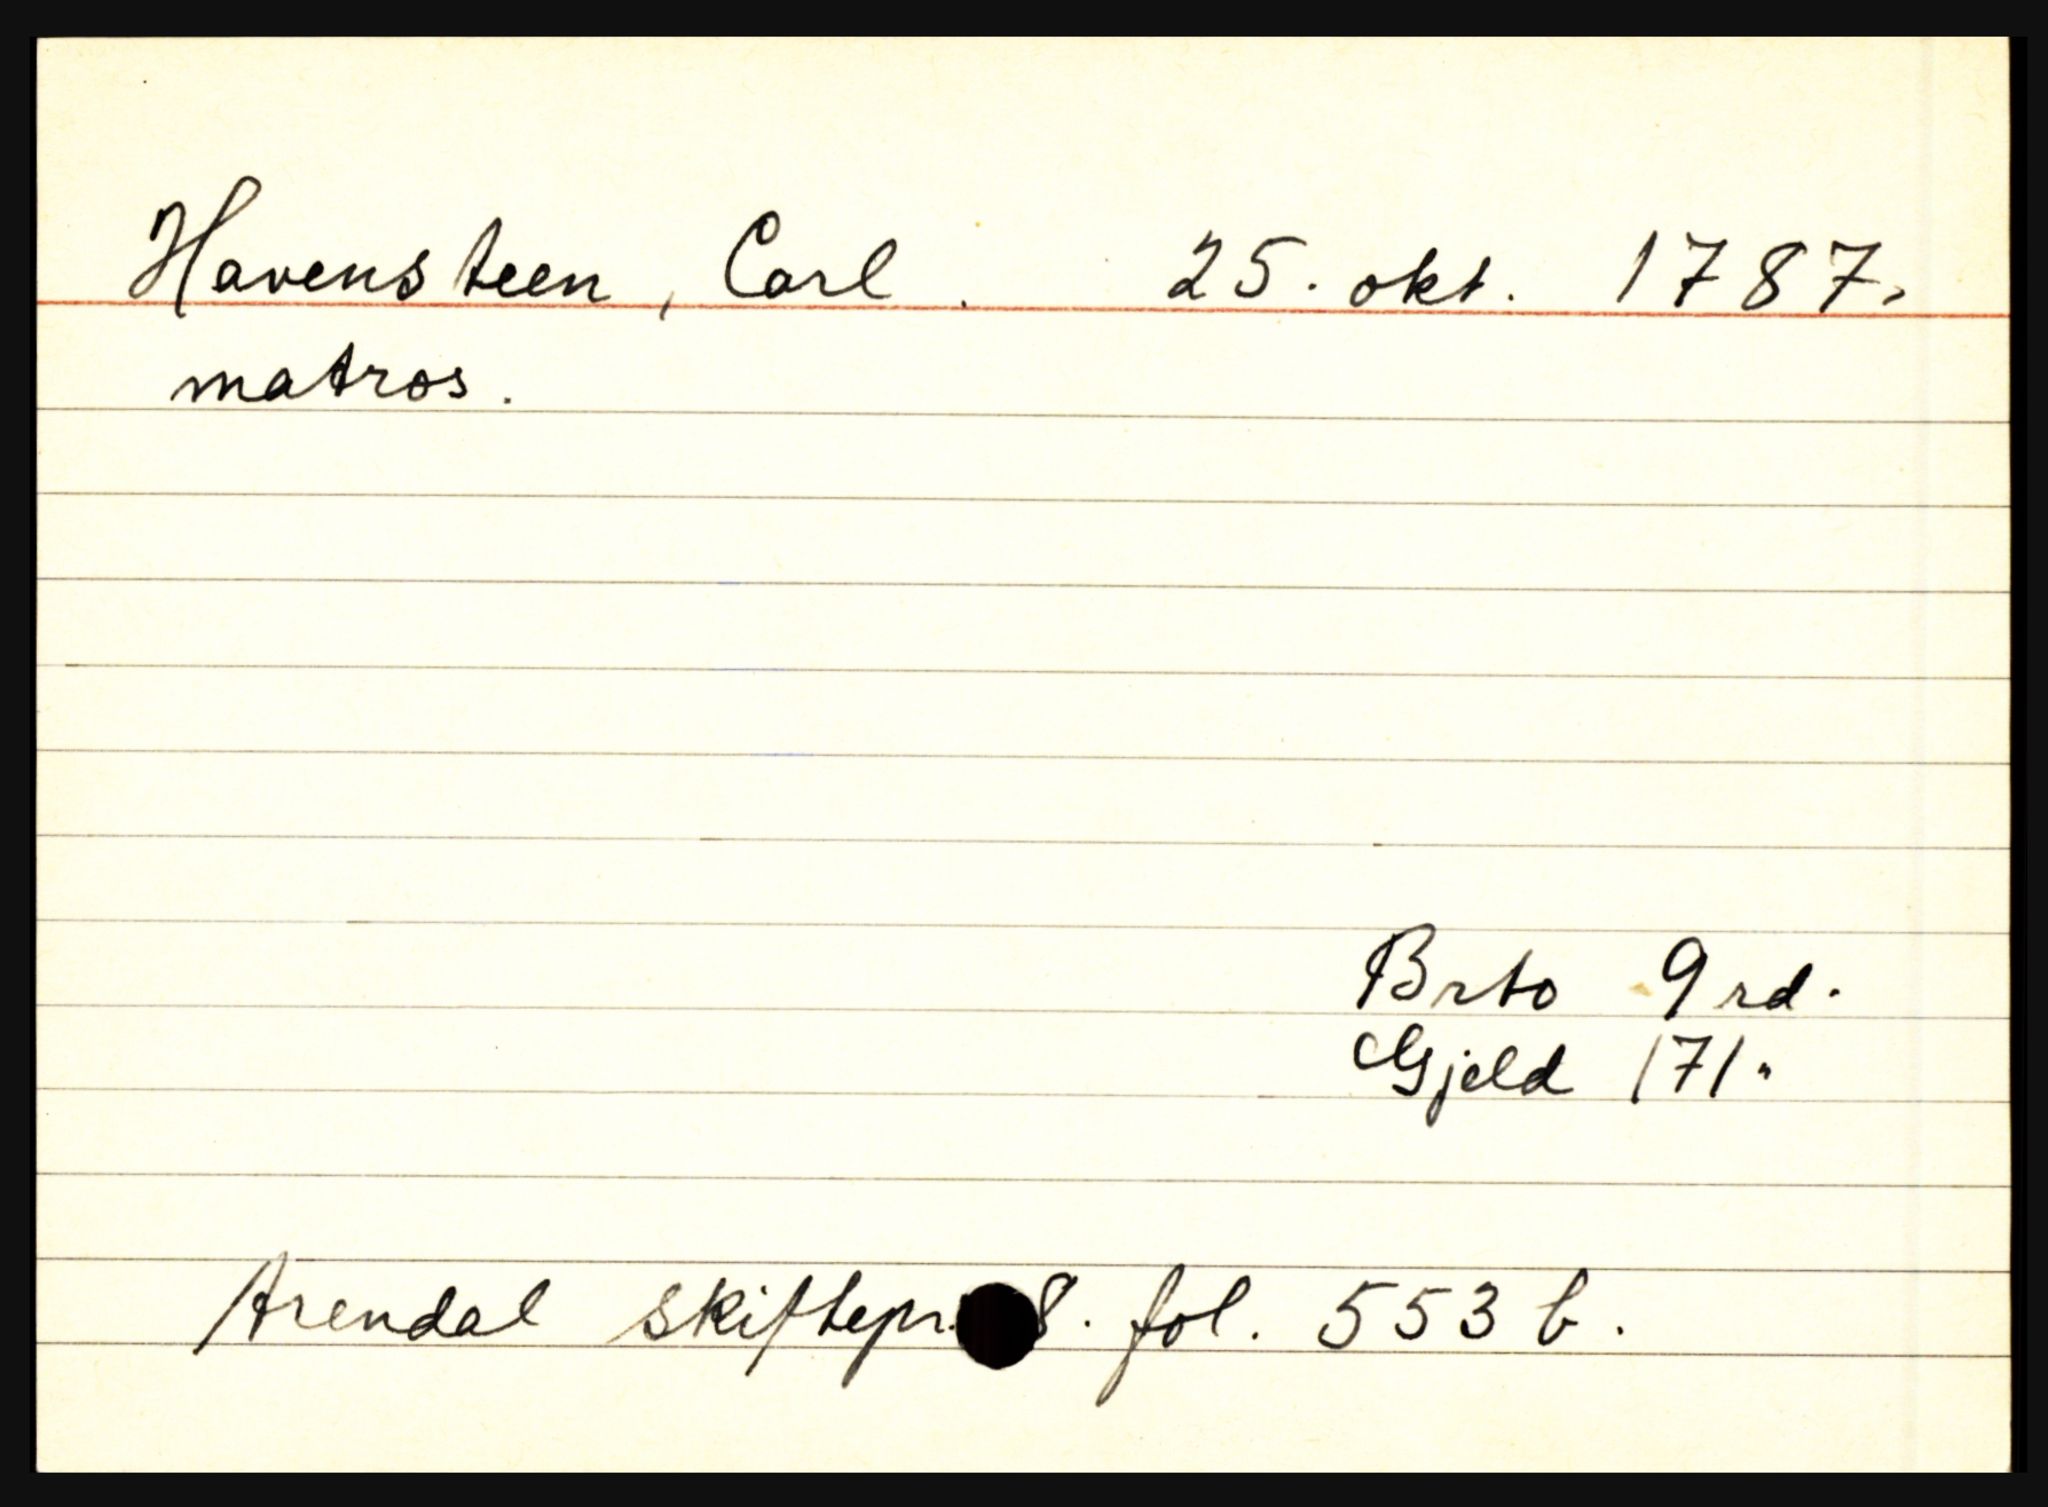 Havensteen, Carl. 25. okt. 1787.
matros.
Brto 9 rd.
Gjeld 171 "
Arendal skiftepr. 8. fol. 553 b.